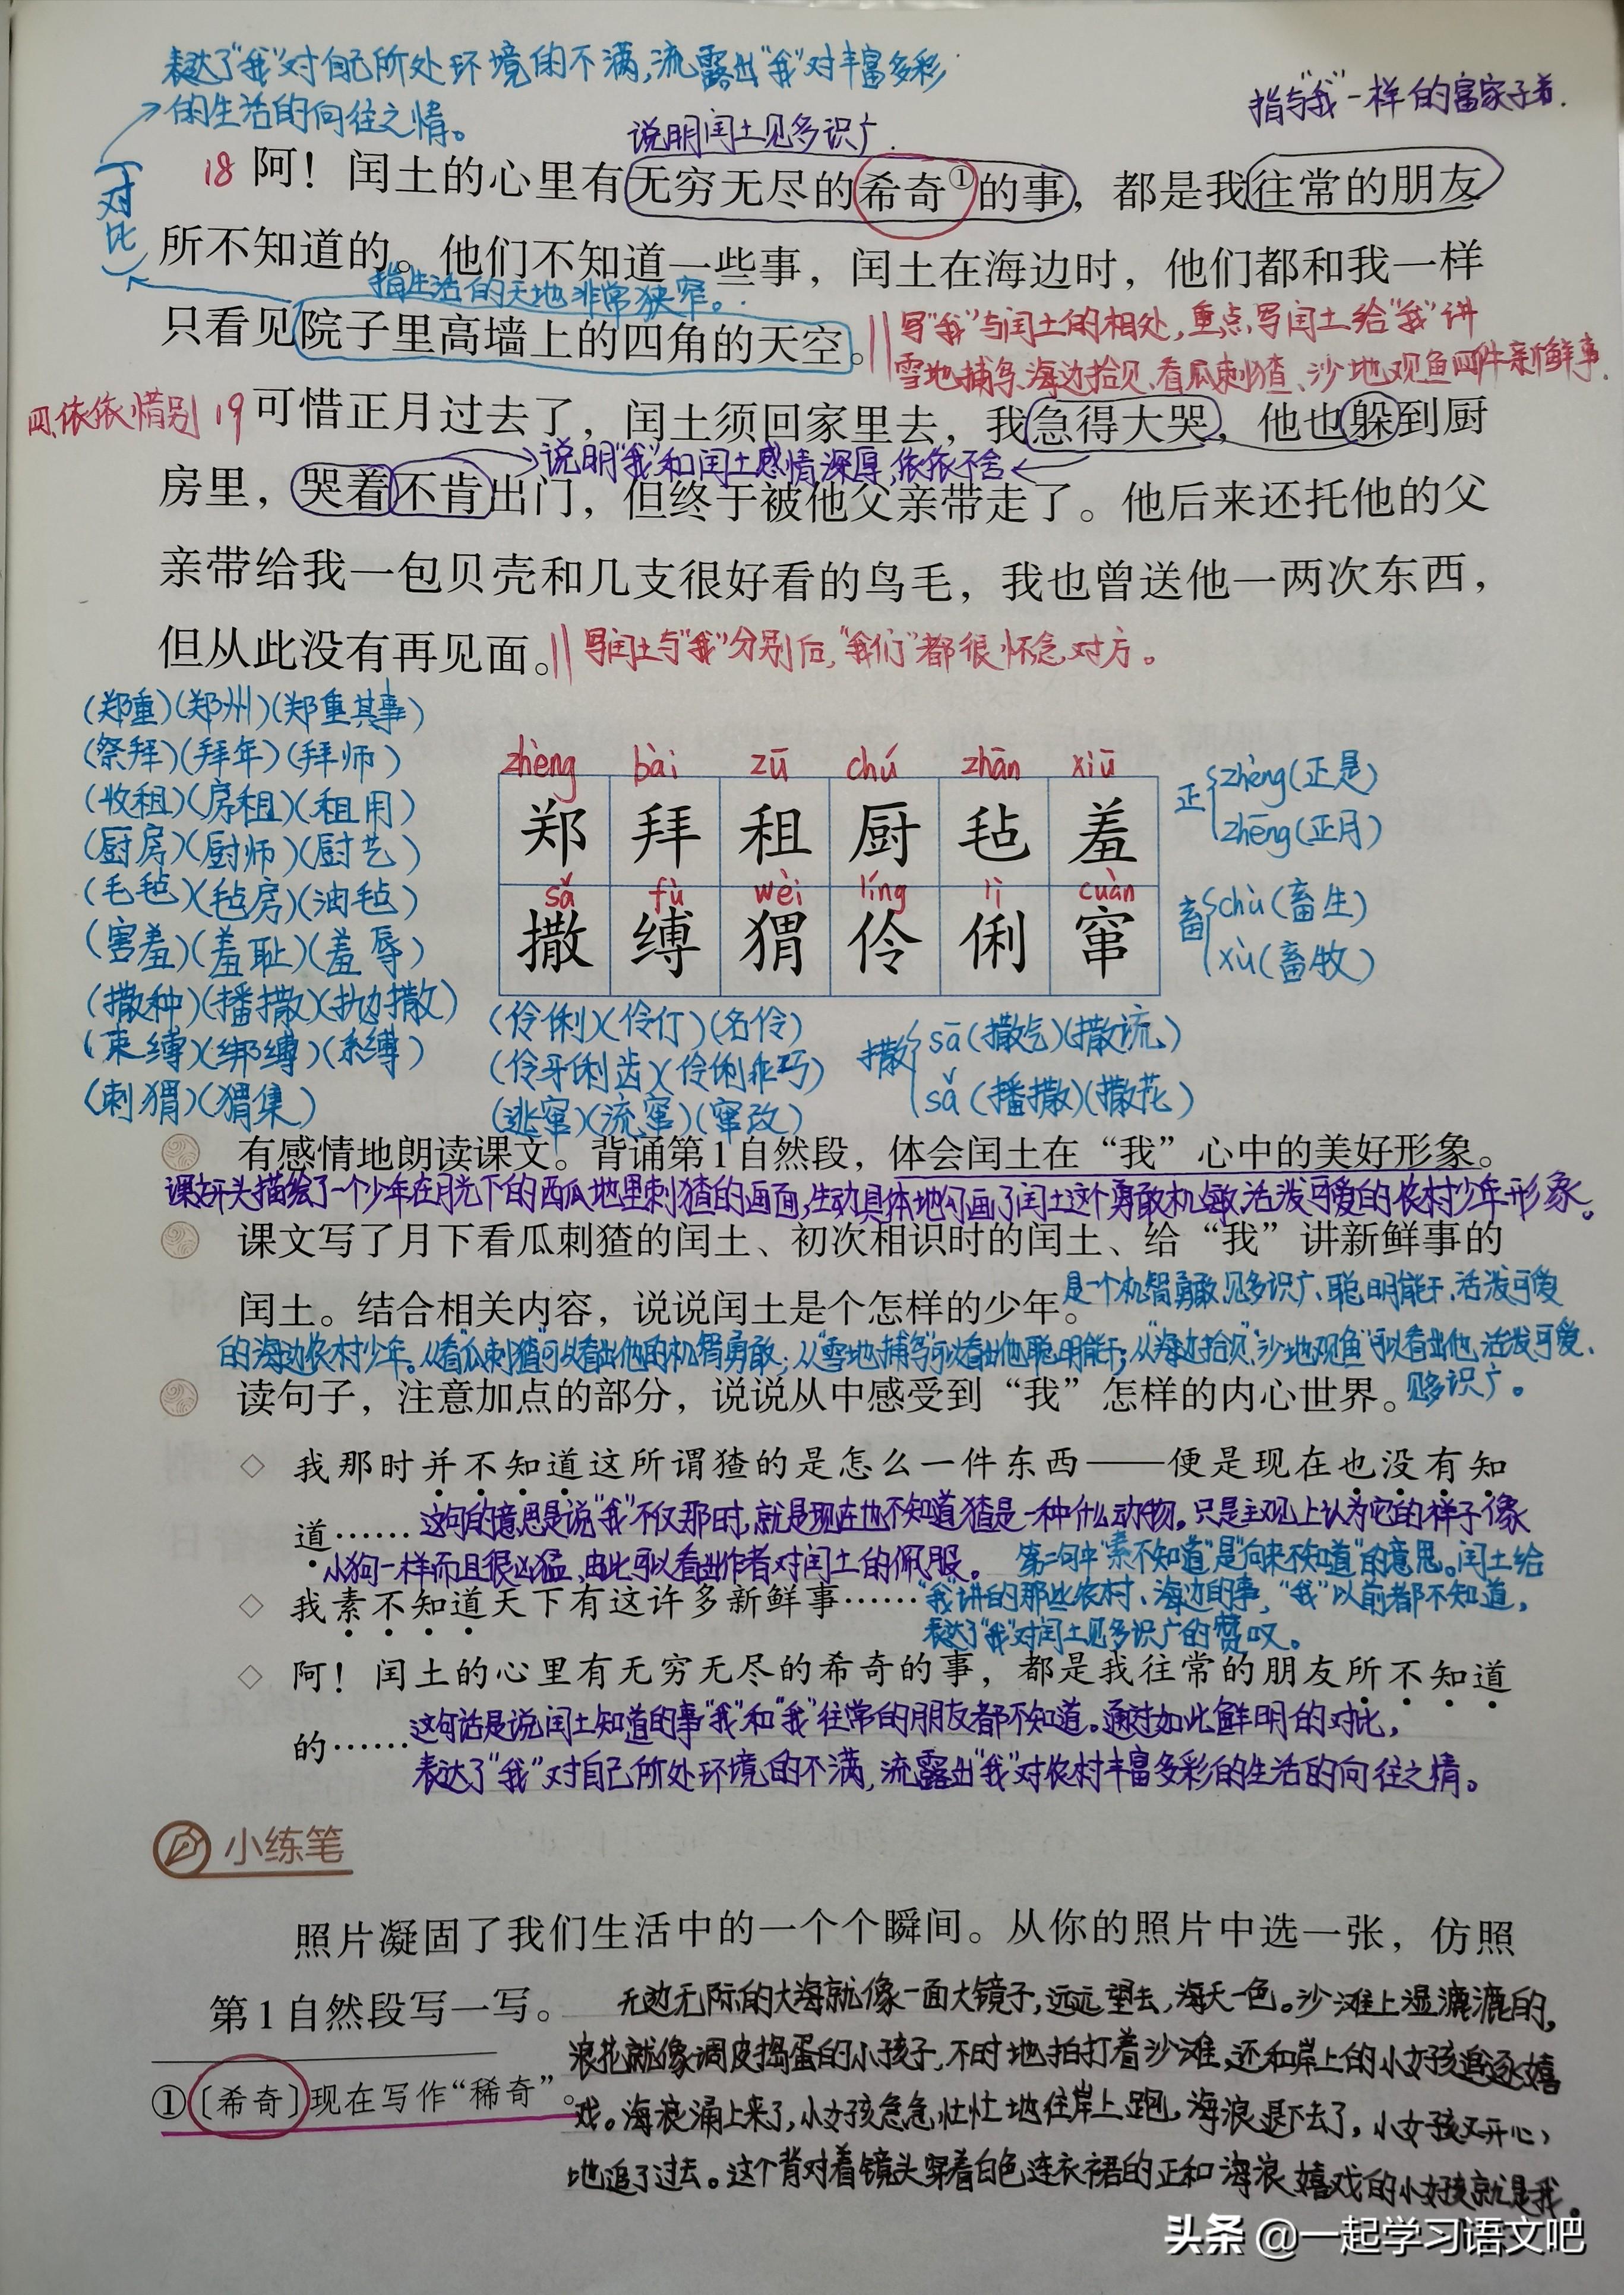 表达了“我”对自己所处环境的不满,流露出“我”对丰富多彩
的生活的向往之情。
指与“我”一样的富家子弟.
说明闰土见多识广.
(对比)
18 阿！闰土的心里有无穷无尽的希奇①的事，都是我往常的朋友
所不知道的。他们不知道一些事，闰土在海边时，他们都和我一样
指生活的天地非常狭窄。
只看见院子里高墙上的四角的天空。
写“我”与闰土的相处,重点写闰土给“我”讲
雪地捕鸟、海边拾贝、看瓜刺猹、沙地观鱼四件新鲜事.
四.依依惜别 19 可惜正月过去了，闰土须回家里去，我急得大哭，他也躲到厨
说明“我”和闰土感情深厚,依依不舍
房里，哭着不肯出门，但终于被他父亲带走了。他后来还托他的父
亲带给我一包贝壳和几支很好看的鸟毛，我也曾送他一两次东西，
但从此没有再见面。
写闰土与“我”分别后,“我们”都很怀念对方。
(郑重)(郑州)(郑重其事)
(祭拜)(拜年)(拜师)
(收租)(房租)(租用)
(厨房)(厨师)(厨艺)
(毛毡)(毡房)(油毡)
(害羞)(羞耻)(羞辱)
(撒种)(播撒)(抛撒)
(束缚)(绑缚)(系缚)
(刺猬)(猬集)
zhèng bài zū chú zhān xiū
郑 拜 租 厨 毡 羞
sǎ fù wèi líng lì cuàn
撒 缚 猬 伶 俐 窜
正 zhèng(正是)
zhēng(正月)
畜 chù(畜生)
xù(畜牧)
(伶俐)(伶仃)(名伶)
(伶牙俐齿)(伶俐乖巧)
(逃窜)(流窜)(窜改)
撒 sā(撒气)(撒谎)
sǎ(播撒)(撒花)
有感情地朗读课文。背诵第1自然段，体会闰土在“我”心中的美好形象。
课文开头描绘了一个少年在月光下的西瓜地里刺猹的画面,生动具体地勾画了闰土这个勇敢机敏、活泼可爱的农村少年形象。
课文写了月下看瓜刺猹的闰土、初次相识时的闰土、给“我”讲新鲜事的
闰土。结合相关内容，说说闰土是个怎样的少年。
是一个机智勇敢、见多识广、聪明能干、活泼可爱
的海边农村少年。从“看瓜刺猹”可以看出他的机智勇敢;从“雪地捕鸟”可以看出他聪明能干;从“海边拾贝”、“沙地观鱼”可以看出他活泼可爱、
见多识广。
读句子，注意加点的部分，说说从中感受到“我”怎样的内心世界。
◇ 我那时并不知道这所谓猹的是怎么一件东西——便是现在也没有知
道……
这句的意思是说“我”不仅那时,就是现在也不知道猹是一种什么动物。只是主观上认为它的样子像
小狗一样而且很凶猛,由此可以看出作者对闰土的佩服。
第二句中“素不知道”是“向来不知道”的意思。闰土给
◇ 我素不知道天下有这许多新鲜事……
“我”讲的那些农村、海边的事,“我”以前都不知道,
表达了“我”对闰土见多识广的赞叹。
◇ 阿！闰土的心里有无穷无尽的希奇的事，都是我往常的朋友所不知道
的……
这句话是说闰土知道的事“我”和“我”往常的朋友都不知道。通过如此鲜明的对比,
表达了“我”对自己所处环境的不满,流露出“我”对农村丰富多彩的生活的向往之情。
小练笔
照片凝固了我们生活中的一个个瞬间。从你的照片中选一张，仿照
第1自然段写一写。
无边无际的大海就像一面大镜子,远远望去,海天一色。沙滩上湿漉漉的,
浪花就像调皮捣蛋的小孩子,不时地拍打着沙滩,还和岸上的小女孩追逐嬉
戏。海浪涌上来了,小女孩急急忙忙地往岸上跑,海浪退下去了,小女孩又开心
地追了过去。这个背对着镜头穿着白色连衣裙的正和海浪嬉戏的小女孩就是我。
①〔希奇〕现在写作“稀奇”。
头条 @一起学习语文吧